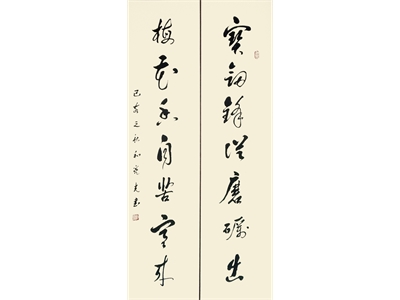 寶劍鋒從磨礪出
梅花香自苦寒來
己亥之秋